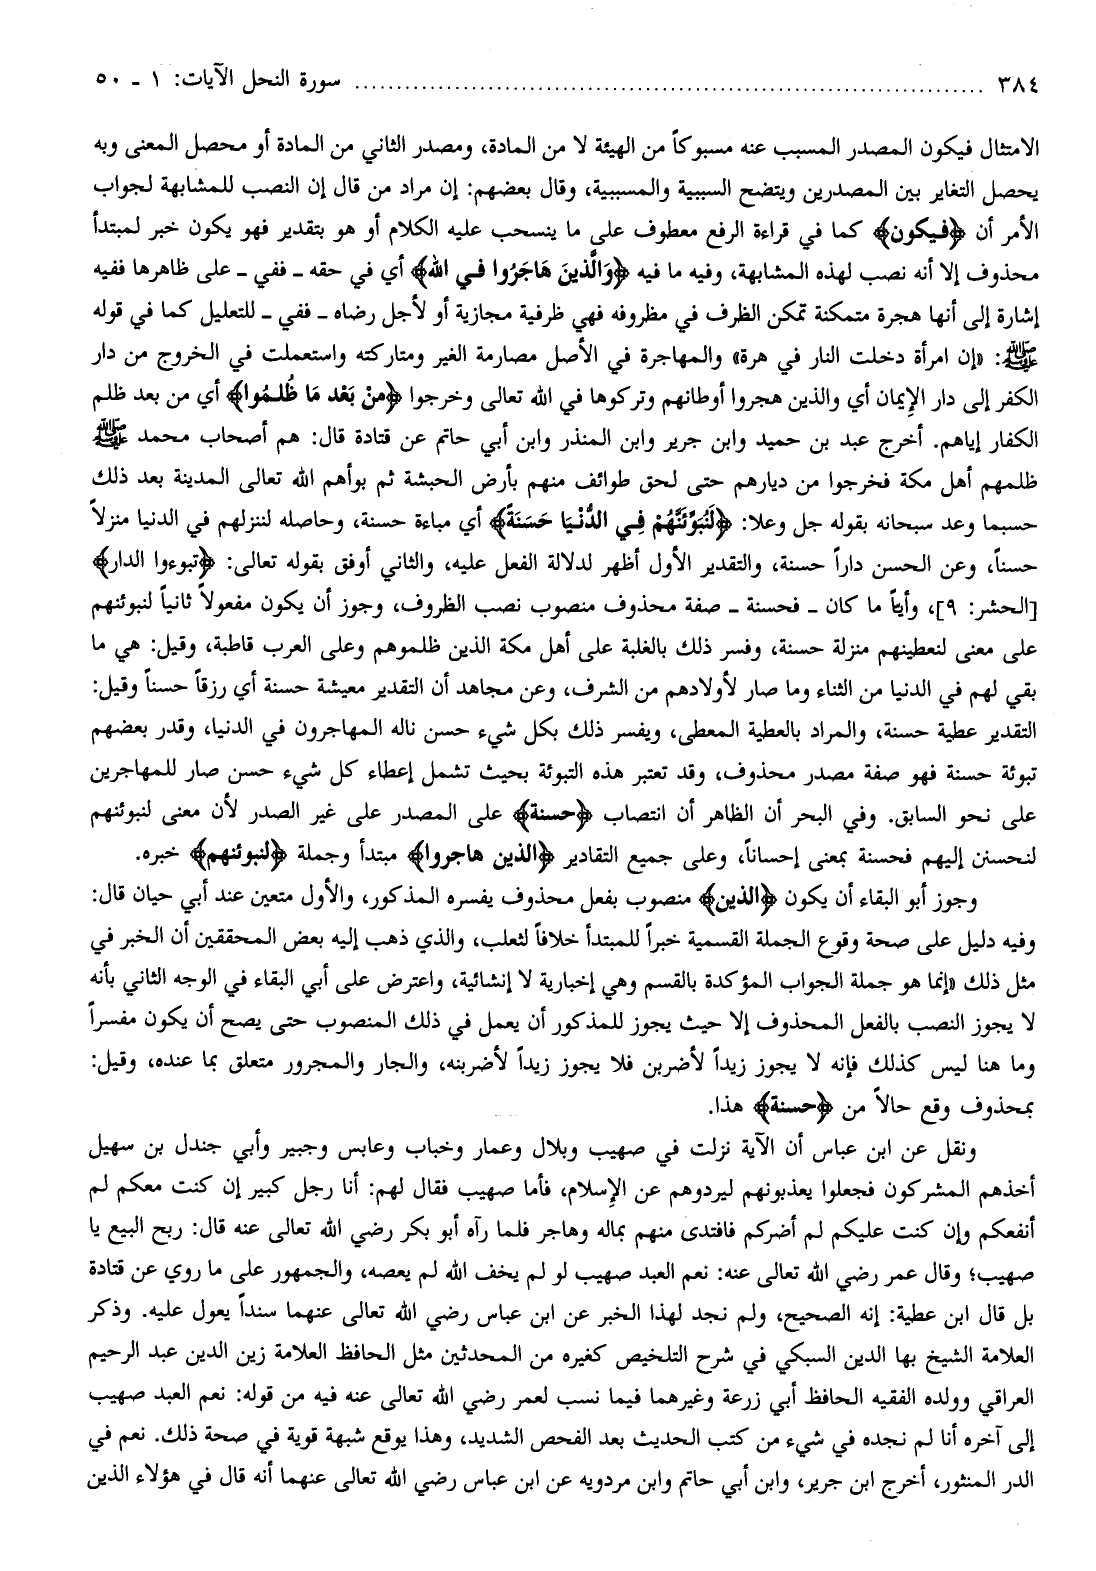 ٣٨٤ ........ سورة النحل الآيات: ١ ـ ٥٠
الامتثال فيكون المصدر المسبب عنه مسبوكاً من الهيئة لا من المادة، ومصدر الثاني من المادة أو محصل المعنى وبه
يحصل التغاير بين المصدرين ويتضح السببية والمسببية، وقال بعضهم: إن مراد من قال إن النصب للمشابهة لجواب
الأمر أن ﴿فيكون﴾ كما في قراءة الرفع معطوف على ما ينسحب عليه الكلام أو هو بتقدير فهو يكون خبر لمبتدأ
محذوف إلا أنه نصب لهذه المشابهة، وفيه ما فيه ﴿وَالَّذينَ هَاجَرُوا فـي الله﴾ أي في حقه ـ ففي ـ على ظاهرها ففيه
إشارة إلى أنها هجرة متمكنة تمكن الظرف في مظروفه فهي ظرفية مجازية أو لأجل رضاه ـ ففي ـ للتعليل كما في قوله
ﷺ: «إن امرأة دخلت النار في هرة» والمهاجرة في الأصل مصارمة الغير ومتاركته واستعملت في الخروج من دار
الكفر إلى دار الإيمان أي والذين هجروا أوطانهم وتركوها في الله تعالى وخرجوا ﴿منْ بَعْد مَا ظُلـمُوا﴾ أي من بعد ظلم
الكفار إياهم. أخرج عبد بن حميد وابن جرير وابن المنذر وابن أبي حاتم عن قتادة قال: هم أصحاب محمد ﷺ
ظلمهم أهل مكة فخرجوا من ديارهم حتى لحق طوائف منهم بأرض الحبشة ثم بوأهم الله تعالى المدينة بعد ذلك
حسبما وعد سبحانه بقوله جل وعلا: ﴿لَنُبَوِّئَنَّهُمْ فِـي الدُّنْـيَا حَسَنَةً﴾ أي مباءة حسنة، وحاصله لننزلهم في الدنيا منزلاً
حسناً، وعن الحسن داراً حسنة، والتقدير الأول أظهر لدلالة الفعل عليه، والثاني أوفق بقوله تعالى: ﴿تبوءوا الدار﴾
[الحشر: ٩]، وأياً ما كان ـ فحسنة ـ صفة محذوف منصوب نصب الظروف، وجوز أن يكون مفعولاً ثانياً لنبوئنهم
على معنى لنعطينهم منزلة حسنة، وفسر ذلك بالغلبة على أهل مكة الذين ظلموهم وعلى العرب قاطبة، وقيل: هي ما
بقي لهم في الدنيا من الثناء وما صار لأولادهم من الشرف، وعن مجاهد أن التقدير معيشة حسنة أي رزقاً حسناً وقيل:
التقدير عطية حسنة، والمراد بالعطية المعطى، ويفسر ذلك بكل شيء حسن ناله المهاجرون في الدنيا، وقدر بعضهم
تبوئة حسنة فهو صفة مصدر محذوف، وقد تعتبر هذه التبوئة بحيث تشمل إعطاء كل شيء حسن صار للمهاجرين
على نحو السابق. وفي البحر أن الظاهر أن انتصاب ﴿حسنة﴾ على المصدر على غير الصدر لأن معنى لنبوئنهم
لنحسنن إليهم فحسنة بمعنى إحساناً، وعلى جميع التقادير ﴿الذين هاجروا﴾ مبتدأ وجملة ﴿لنبوئنهم﴾ خبره.
وجوز أبو البقاء أن يكون ﴿الذين﴾ منصوب بفعل محذوف يفسره المذكور، والأول متعين عند أبي حيان قال:
وفيه دليل على صحة وقوع الجملة القسمية خبراً للمبتدأ خلافاً لثعلب، والذي ذهب إليه بعض المحققين أن الخبر في
مثل ذلك «إنما هو جملة الجواب المؤكدة بالقسم وهي إخبارية لا إنشائية، واعترض على أبي البقاء في الوجه الثاني بأنه
لا يجوز النصب بالفعل المحذوف إلا حيث يجوز للمذكور أن يعمل في ذلك المنصوب حتى يصح أن يكون مفسراً
وما هنا ليس كذلك فإنه لا يجوز زيداً لأضربن فلا يجوز زيداً لأضربنه، والجار والمجرور متعلق بما عنده، وقيل:
بمحذوف وقع حالاً من ﴿حسنة﴾ هذا.
ونقل عن ابن عباس أن الآية نزلت في صهيب وبلال وعمار وخباب وعابس وجبير وأبي جندل بن سهيل
أخذهم المشركون فجعلوا يعذبونهم ليردوهم عن الإسلام، فأما صهيب فقال لهم: أنا رجل كبير إن كنت معكم لم
أنفعكم وإن كنت عليكم لم أضركم فافتدى منهم بماله وهاجر فلما رآه أبو بكر رضي الله تعالى عنه قال: ربح البيع يا
صهيب؛ وقال عمر رضي الله تعالى عنه: نعم العبد صهيب لو لم يخف الله لم يعصه، والجمهور على ما روي عن قتادة
بل قال ابن عطية: إنه الصحيح، ولم نجد لهذا الخبر عن ابن عباس رضي الله تعالى عنهما سنداً يعول عليه. وذكر
العلامة الشيخ بها الدين السبكي في شرح التلخيص كغيره من المحدثين مثل الحافظ العلامة زين الدين عبد الرحيم
العراقي وولده الفقيه الحافظ أبي زرعة وغيرهما فيما نسب لعمر رضي الله تعالى عنه فيه من قوله: نعم العبد صهيب
إلى آخره أنا لم نجده في شيء من كتب الحديث بعد الفحص الشديد، وهذا يوقع شبهة قوية في صحة ذلك. نعم في
الدر المنثور، أخرج ابن جرير، وابن أبي حاتم وابن مردويه عن ابن عباس رضي الله تعالى عنهما أنه قال في هؤلاء الذين